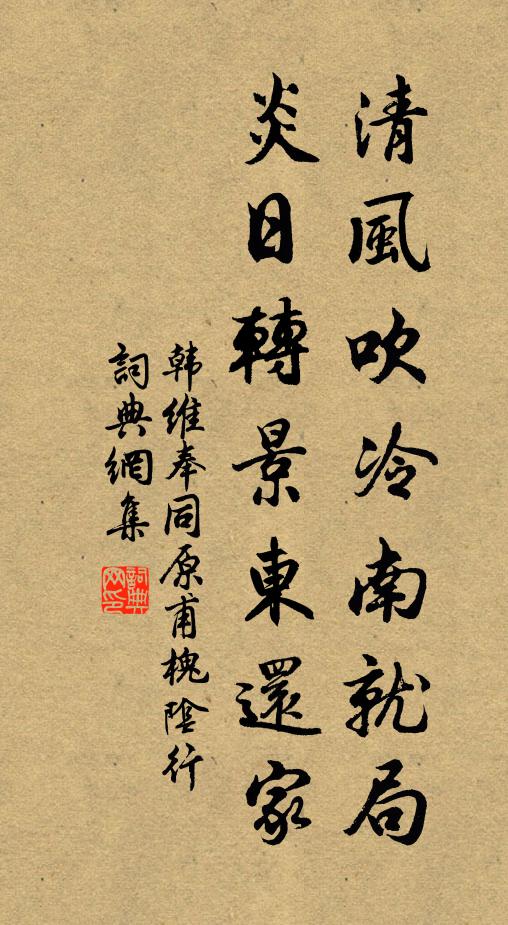 清風吹冷南就局
炎日轉景東還家
韩維奉同原甫槐陰行
詞典網集
詞典网印